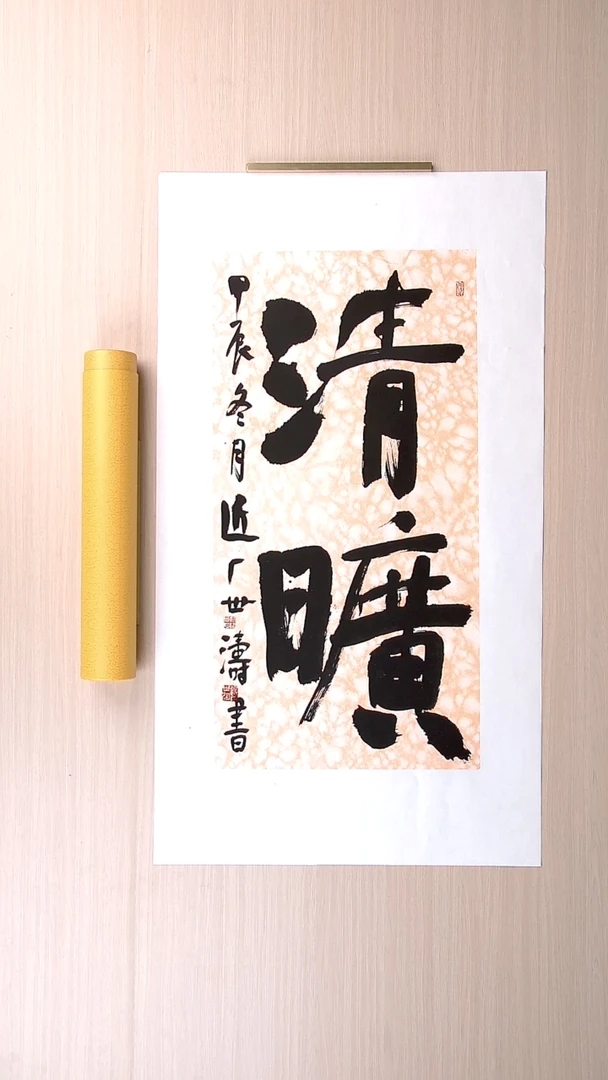 清曠
甲辰冬月 世濤書